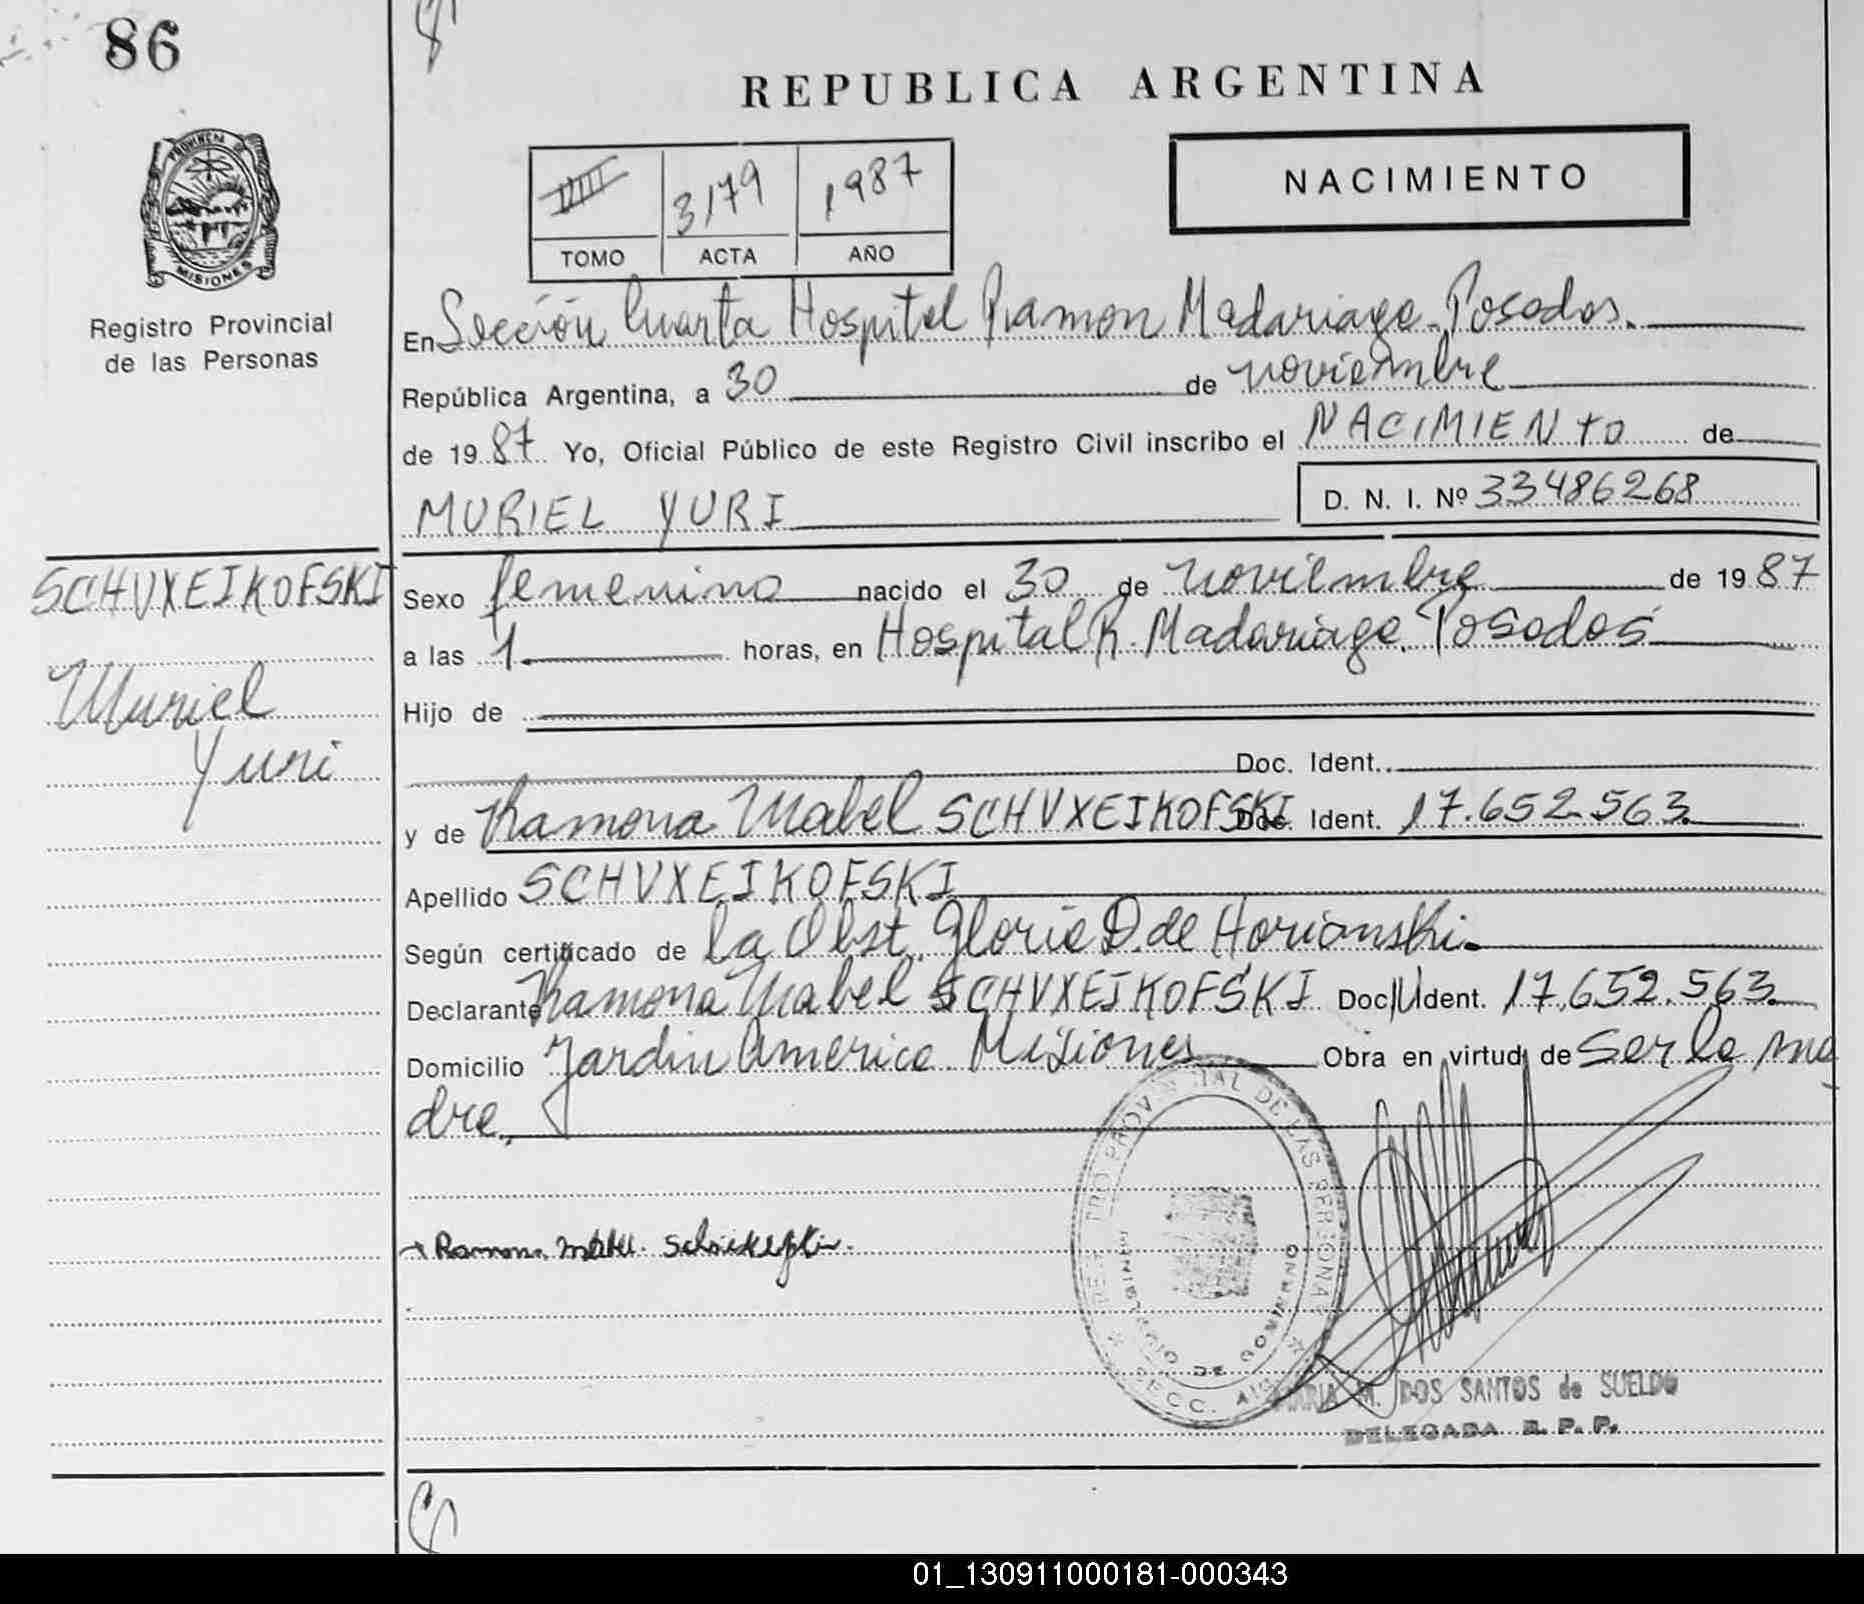 86
REPUBLICA ARGENTINA
PROVINCIA DE
MISIONES
Registro Provincial
de las Personas
3179 1987
TOMO ACTA AÑO
NACIMIENTO
En Sección Cuarta Hospital Ramon Madariaga. Posadas.
República Argentina, a 30 de noviembre
de 1987 Yo, Oficial Público de este Registro Civil inscribo el NACIMIENTO de
MURIEL YURI
D. N. I. Nº 33486268
SCHVXEIKOFSKI
Muriel
Yuri
Sexo femenino nacido el 30 de noviembre de 1987
a las 1. horas, en Hospital R. Madariaga. Posadas
Hijo de
Doc. Ident.
y de Ramona Mabel SCHVXEIKOFSKI Doc. Ident. 17.652.563.
Apellido SCHVXEIKOFSKI
Según certificado de la Obst. Gloria D. de Horianski.
Declarante Ramona Mabel SCHVXEIKOFSKI Doc. Ident. 17.652.563.
Domicilio Jardin America. Misiones Obra en virtud de Ser la ma
dre.
Ramona Mabel
PROVINCIAL DE LAS PERSONAS
MINISTERIO DE GOBIERNO
SECC.
MARIA M. DOS SANTOS de SUELDO
DELEGADA R. P. P.
01_130911000181-000343